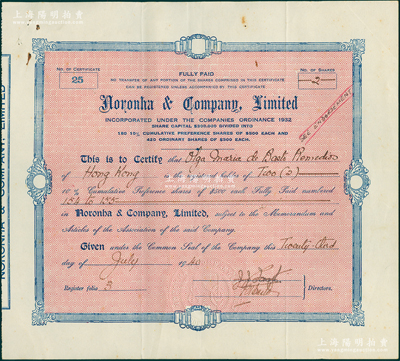 上海陽明拍賣
NORONHA & COMPANY, LIMITED
FULLY PAID
NO. OF CERTIFICATE
25
NO TRANSFER OF ANY PORTION OF THE SHARES COMPRISED IN THIS CERTIFICATE
CAN BE REGISTERED UNLESS ACCOMPANIED BY THIS CERTIFICATE
NO. OF SHARES
2
Noronha & Company, Limited
INCORPORATED UNDER THE COMPANIES ORDINANCE 1932
SHARE CAPITAL DIVIDED INTO
10% CUMULATIVE PREFERENCE SHARES OF $500 EACH AND
ORDINARY SHARES OF $500 EACH.
SEE ENDORSEMENT
This is to Certify that Olga Maria de Remedios
of Hong Kong holder of Two (2)
10% Cumulative Preference shares of $500 each Fully Paid numbered
154 to 155
in Noronha & Company, Limited, subject to the Memorandum and
Articles of the Association of the said Company.
Given under the Common Seal of the Company this Twenty third
day of July 1940
Register folio 3
Directors.